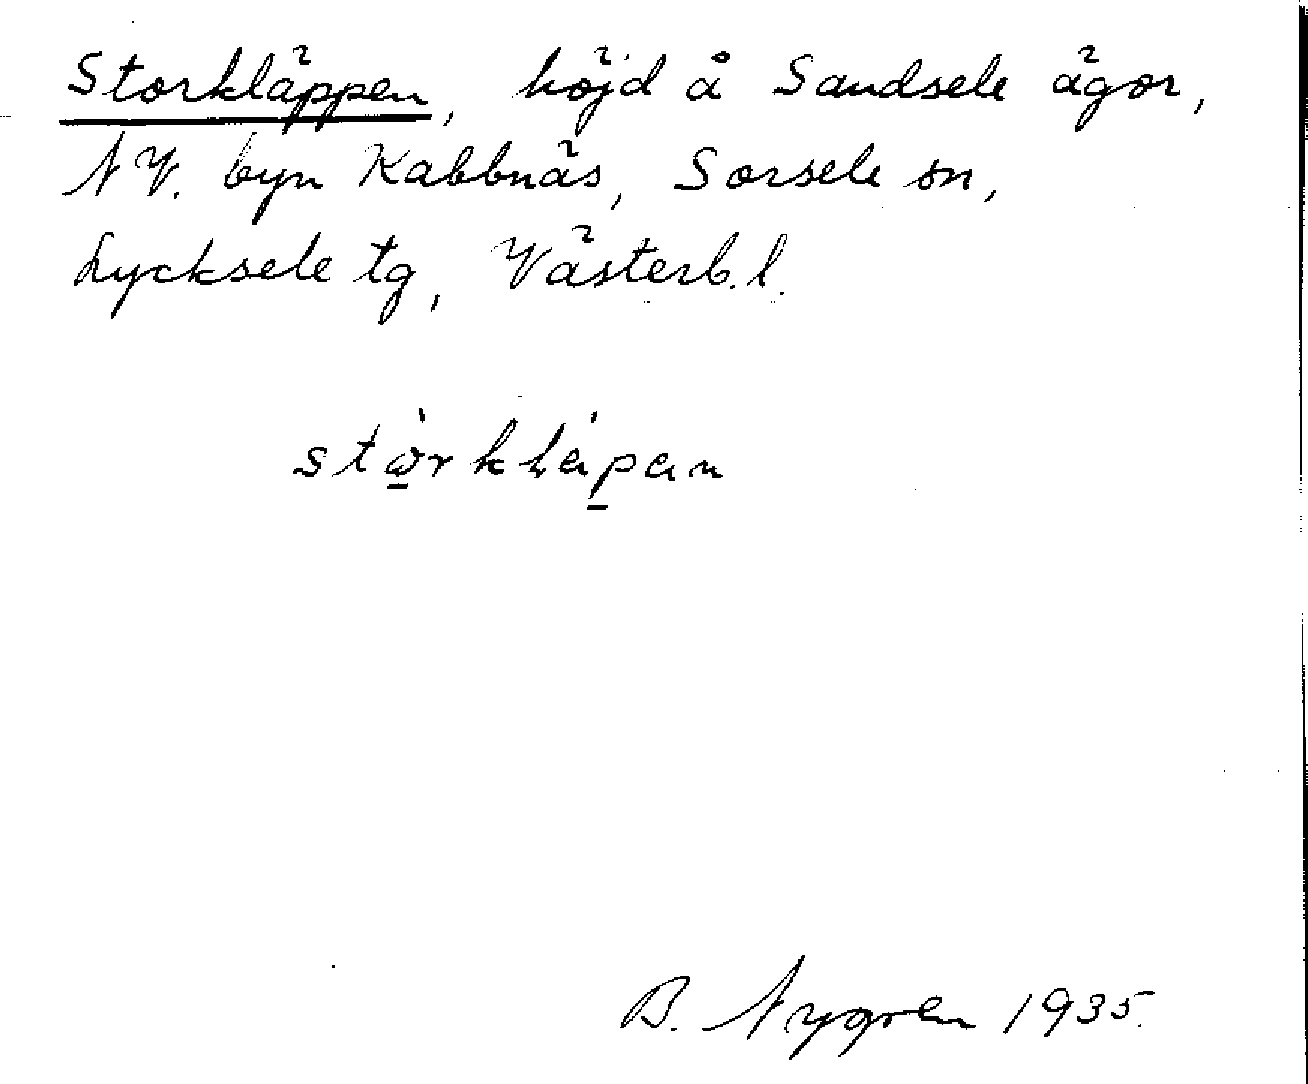 Storkläppen, höjd å Sandsele ägor,
NV. byn Kabbnäs, Sorsele sn,
Lycksele tg, Västerb. l.
B. Nygren 1935.